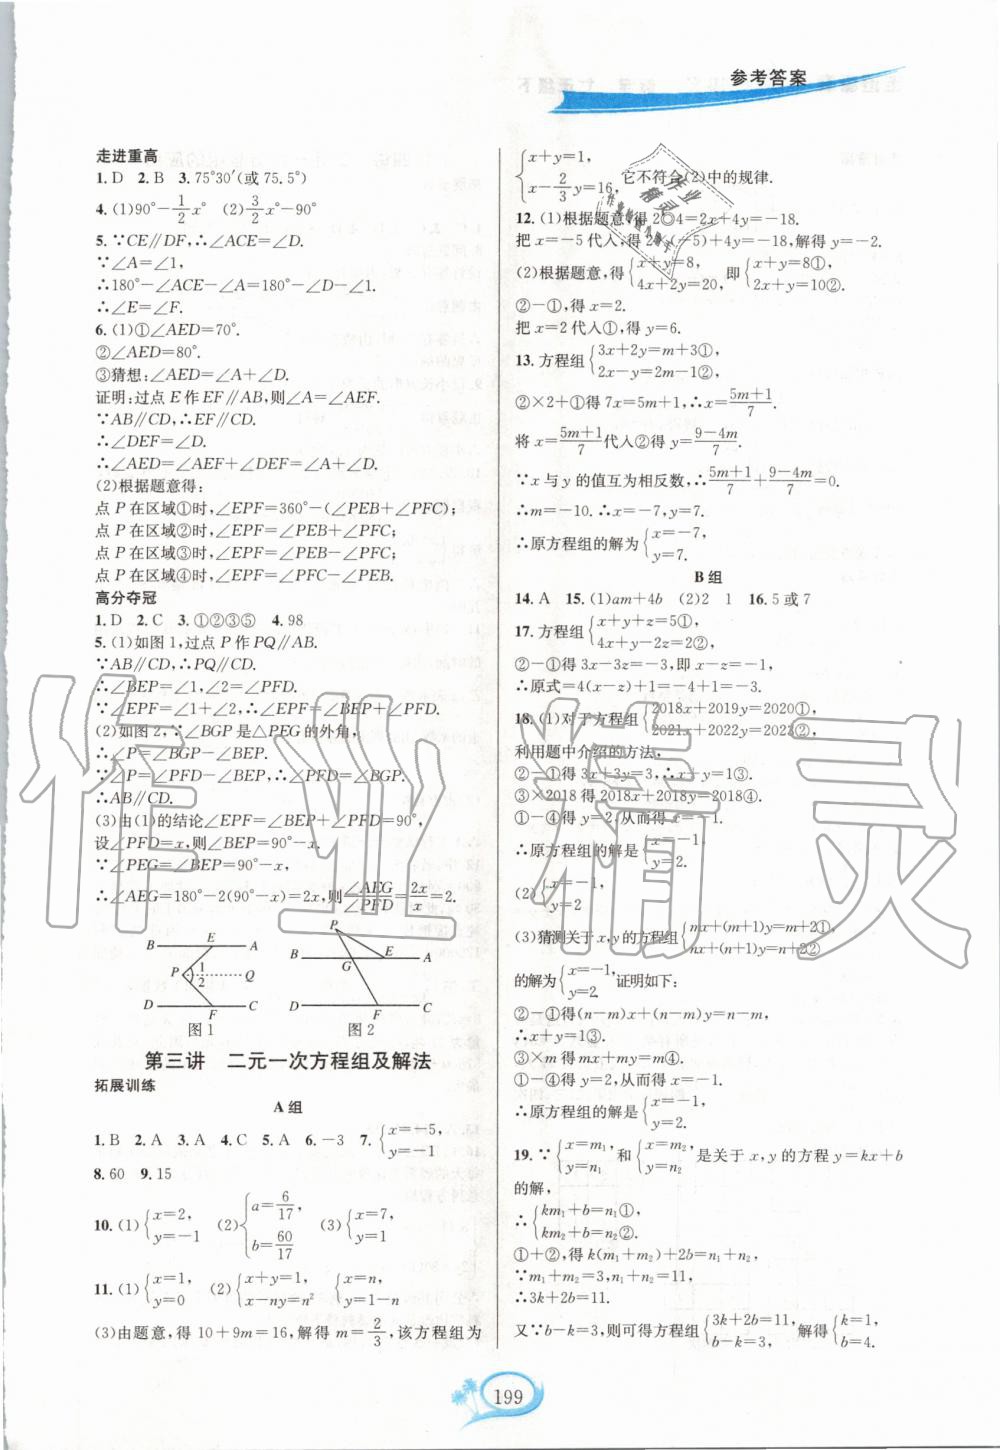 参考答案
走进重高
1.D 2.B 3.75°30′(或 75.5°)
4.(1)90°－1/2x° (2)3/2x°－90°
5.∵CE∥DF,∴∠ACE＝∠D.
∵∠A＝∠1,
∴180°－∠ACE－∠A＝180°－∠D－∠1.
∴∠E＝∠F.
6.(1)①∠AED＝70°.
②∠AED＝80°.
③猜想:∠AED＝∠A＋∠D.
证明:过点 E 作 EF∥AB,则∠A＝∠AEF.
∵AB∥CD,∴EF∥CD.
∴∠DEF＝∠D.
∴∠AED＝∠AEF＋∠DEF＝∠A＋∠D.
(2)根据题意得:
点 P 在区域①时,∠EPF＝360°－(∠PEB＋∠PFC);
点 P 在区域②时,∠EPF＝∠PEB＋∠PFC;
点 P 在区域③时,∠EPF＝∠PEB－∠PFC;
点 P 在区域④时,∠EPF＝∠PFC－∠PEB.
高分夺冠
1.D 2.C 3.①②③⑤ 4.98
5.(1)如图 1,过点 P 作 PQ∥AB.
∵AB∥CD,∴PQ∥CD.
∴∠BEP＝∠1,∠2＝∠PFD.
∵∠EPF＝∠1＋∠2,∴∠EPF＝∠BEP＋∠PFD.
(2)如图 2,∵∠BGP 是△PEG 的外角,
∴∠P＝∠BGP－∠BEP.
∵∠P＝∠PFD－∠BEP,∴∠PFD＝∠BGP.
∴AB∥CD.
(3)由(1)的结论∠EPF＝∠BEP＋∠PFD＝90°,
设∠PFD＝x,则∠BEP＝90°－x.
∵∠PEG＝∠BEP＝90°－x,
∴∠AEG＝180°－2(90°－x)＝2x,则∠AEG/∠PFD＝2x/x＝2.
B E A
P 1 2 Q
D F C
图 1
P
B G E A
D F C
图 2
第三讲 二元一次方程组及解法
拓展训练
A 组
1.B 2.A 3.A 4.C 5.A 6.－3 7.{x＝－5, y＝－1
8.60 9.15
10.(1){x＝2, y＝－1 (2){a＝6/17, b＝60/17 (3){x＝7, y＝1
11.(1){x＝1, y＝0 (2){x＋y＝1, x－ny＝n² {x＝n, y＝1－n
(3)由题意,得 10＋9m＝16,解得 m＝2/3,该方程组为
{x＋y＝1, x－2/3y＝16, 它不符合(2)中的规律.
12.(1)根据题意,得 2◎4＝2x＋4y＝－18.
把 x＝－5 代入,得 2×(－5)＋4y＝－18,解得 y＝－2.
(2)根据题意,得{x＋y＝8, 4x＋2y＝20, 即{x＋y＝8①, 2x＋y＝10②.
②－①,得 x＝2.
把 x＝2 代入①,得 y＝6.
13.方程组{3x＋2y＝m＋3①, 2x－y＝2m－1②,
②×2＋①得 7x＝5m＋1,∴x＝5m＋1/7.
将 x＝5m＋1/7代入②得 y＝9－4m/7.
∵x 与 y 的值互为相反数,∴5m＋1/7＋9－4m/7＝0.
∴m＝－10.∴x＝－7,y＝7.
∴原方程组的解为{x＝－7, y＝7.
B 组
14.A 15.(1)am＋4b (2)2 1 16.5 或 7
17.方程组{x＋y＋z＝5①, 4x＋y－2z＝2②,
②－①得 3x－3z＝－3,即 x－z＝－1,
∴原式＝4(x－z)＋1＝－4＋1＝－3.
18.(1)对于方程组{2018x＋2019y＝2020①, 2021x＋2022y＝2023②,
利用题中介绍的方法,
②－①得 3x＋3y＝3,∴x＋y＝1③.
③×2018 得 2018x＋2018y＝2018④.
①－④得 y＝2,从而得 x＝－1.
∴原方程组的解是{x＝－1, y＝2.
(2){x＝－1, y＝2
(3)猜测关于 x,y 的方程组{mx＋(m＋1)y＝m＋2①, nx＋(n＋1)y＝n＋2②
的解为{x＝－1, y＝2. 证明如下:
②－①得(n－m)x＋(n－m)y＝n－m,
∴x＋y＝1③.
③×m 得 mx＋my＝m④.
①－④得 y＝2,从而得 x＝－1.
∴原方程组的解是{x＝－1, y＝2.
19.∵{x＝m₁, y＝n₁ 和{x＝m₂, y＝n₂ 是关于 x,y 的方程 y＝kx＋b
的解,
∴{km₁＋b＝n₁①, km₂＋b＝n₂②.
①＋②,得 k(m₁＋m₂)＋2b＝n₁＋n₂,
∵m₁＋m₂＝3,n₁＋n₂＝11,
∴3k＋2b＝11.
又∵b－k＝3,则可得方程组{3k＋2b＝11, b－k＝3, 解得{k＝1, b＝4.
199
作业精灵